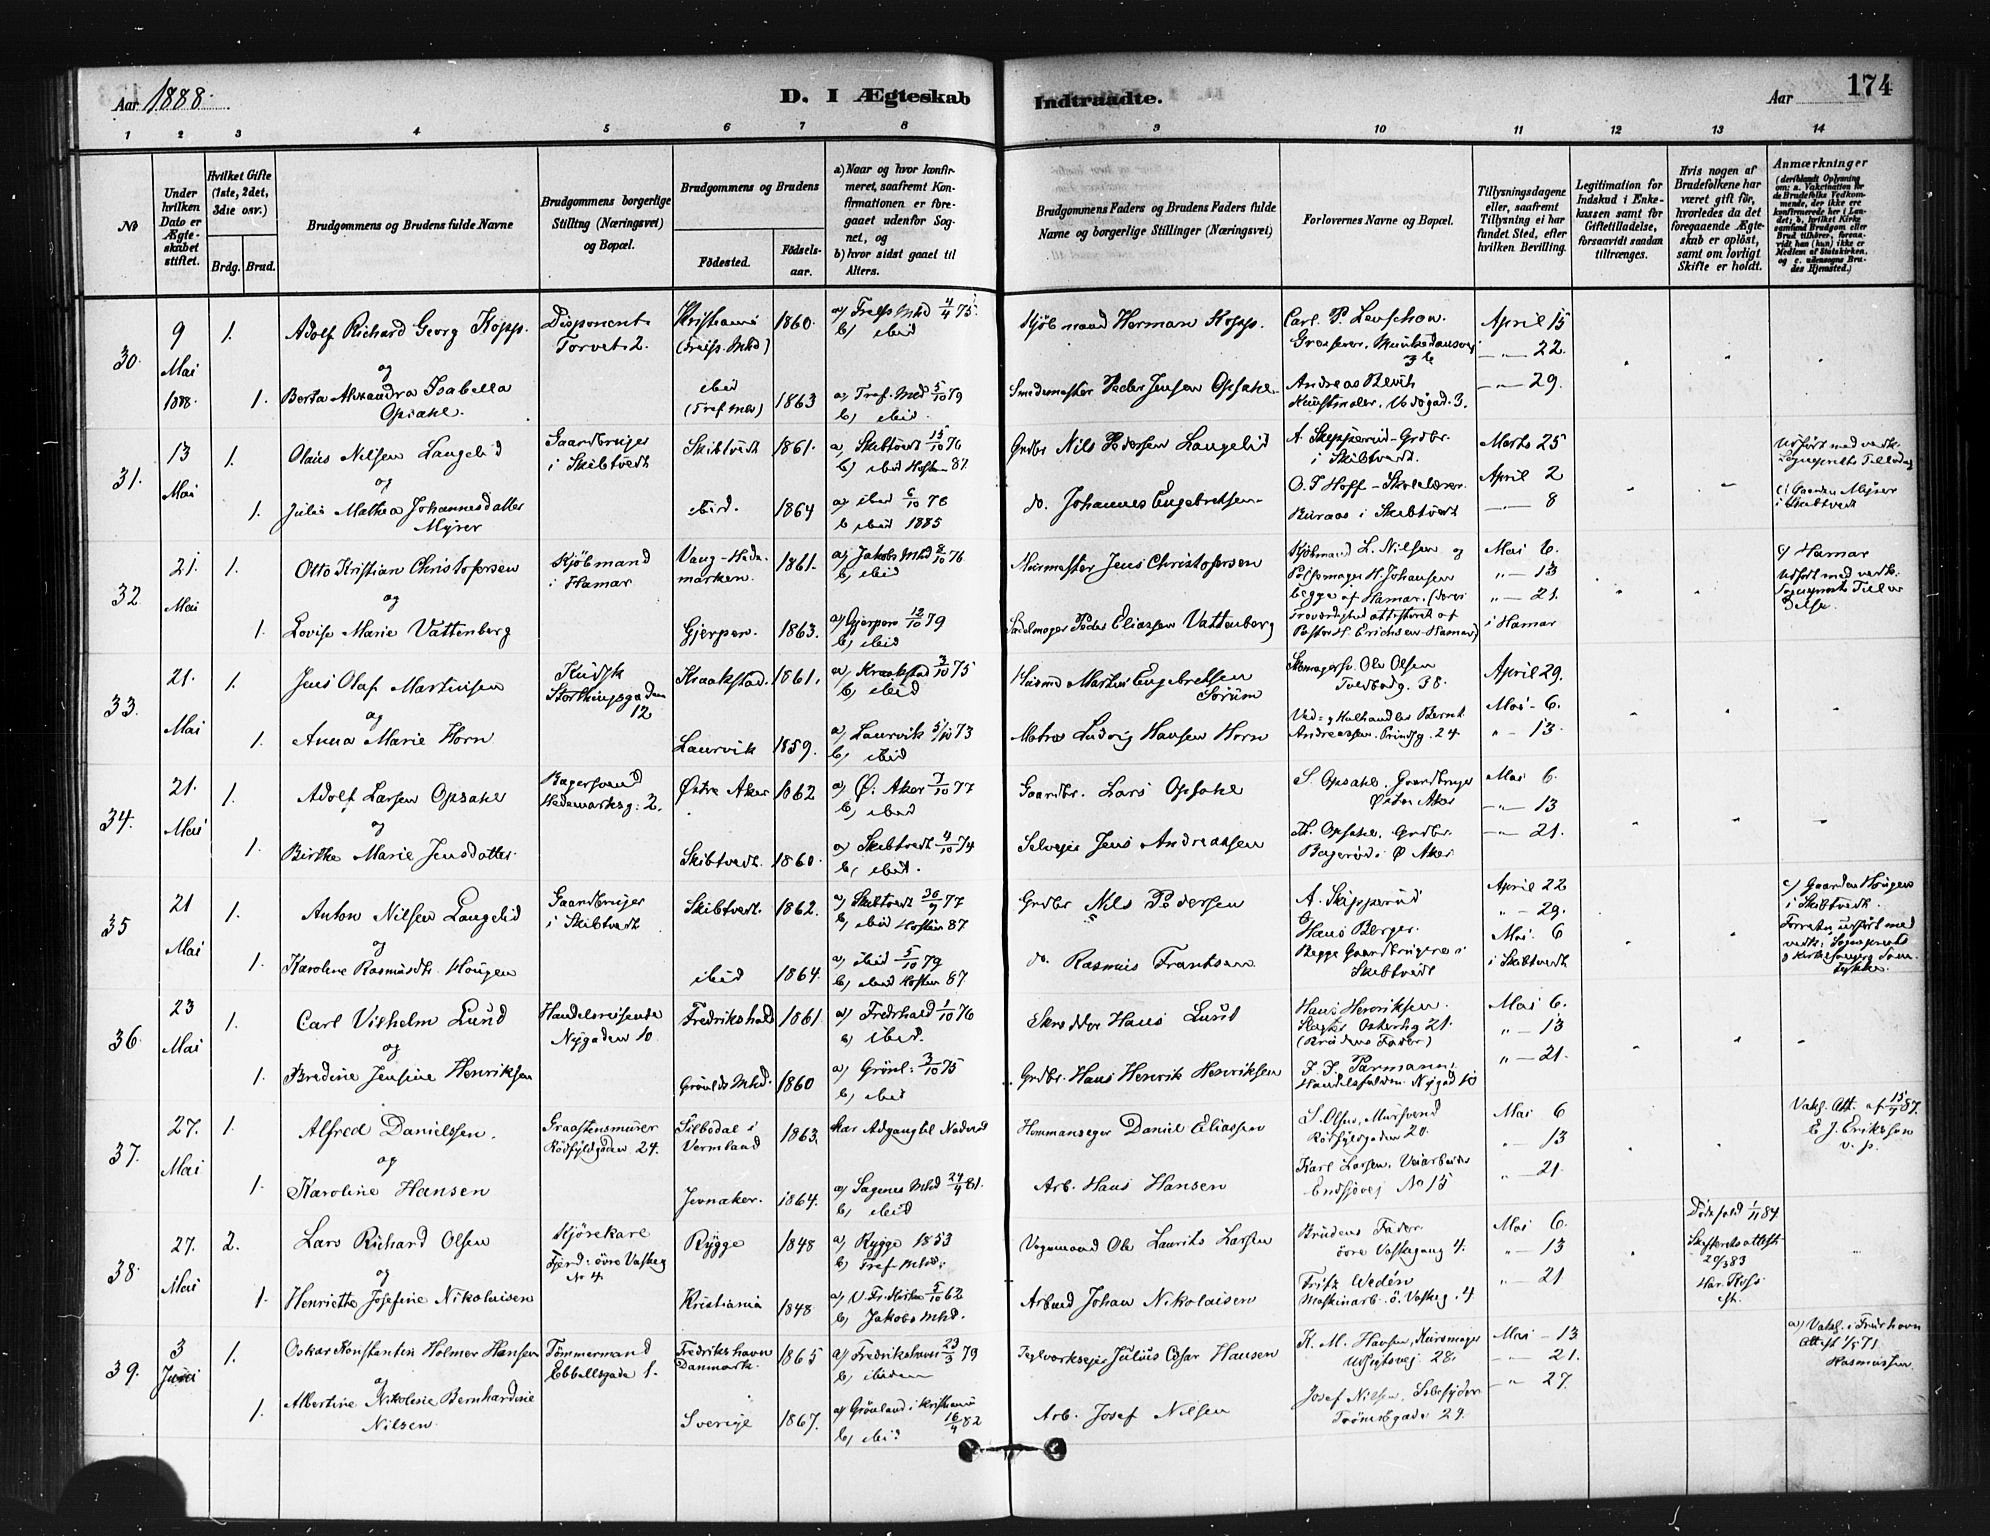 Aar 1888.
D. I Ægteskab
Indtraadte.
Aar
174
1 2 3 4 5 6 7 8 9 10 11 12 13 14
No
Under hvilken Dato er Ægteskabet stiftet.
Hvilket Gifte (1ste, 2det, 3die osv.)
Brdg. Brud.
Brudgommens og Brudens fulde Navne
Brudgommens borgerlige Stilling (Næringsvei) og Bopæl.
Brudgommens og Brudens
Fødested.
Fødselsaar.
a) Naar og hvor konfirmeret, saafremt Konfirmationen er foregaaet udenfor Sognet, og
b) hvor sidst gaaet til Alters.
Brudgommens Faders og Brudens Faders fulde Navne og borgerlige Stillinger (Næringsvei)
Forlovernes Navne og Bopæl.
Tillysningsdagene eller, saafremt Tillysning ei har fundet Sted, efter hvilken Bevilling.
Legitimation for Indskud i Enkekassen samt for Giftetilladelse, forsaavidt saadan tiltrænges.
Hvis nogen af Brudefolkene har været gift før, hvorledes da det foregaaende Ægteskab er opløst, samt om lovligt Skifte er holdt.
Anmærkninger (deriblandt Oplysning om: a. Vakcination for de Brudefolks Vedkommende, der ikke ere konfirmerede her i Landet; b. hvilket Kirkesamfund Brudgom eller Brud tilhører, forsaavidt han (hun) ikke er Medlem af Statskirken, og c. udensogns Brudes Hjemsted.)
30. 9 Mai 1888. 1. Adolf Richard Georg Kopp. Disponent Torvet 2. Kristiania 1860. b) ibid Kjøbmand Herman Kopp. Carl P. Levschow. Grosserer. April 15
22.
og
1. Berta Alexandra Isabella Opsahl. ibid 1863 a) Tref. Mhd 5/10 79 b) ibid. Smedemester Peder Jensen Opsahl. Andreas Kunstmaler. 29.
31. 13 Mai 1. Olaus Nilsen Langelid Gaardbruger i Skibtvedt Skibtvedt 1861. a) Skibtvedt 15/10 76 b) ibid Høsten 87 Grdbr Nils Pedersen Langelid A. Skipperud Grdbr. i Skibtvedt. Marts 25
April 2
og
1. Julie Mathea Johannesdatter Myrer ibid. 1864 a) ibid 6/10 78 b ibid 1885 do. Johannes Engebretsen O. T Hoff - Skolelærer Buraas i Skibtvedt 8 c) Gaarden Myrer i Skibtvedt
32 21. Mai 1. Otto Kristian Christofersen Kjøbmand i Hamar Vang - Hedemarken. 1861. a) Jakobs Mhd 8/10 76 b) ibid Murmester Jens Christofersen Kjøbmand L. Nilsen og Pølsemager H. Johansen begge af Hamar. Mai 6.
13
21.
i Hamar
c) Hamar
og
1. Lovise Marie Vattenberg Gjerpen. 1863. a) Gjerpen 12/10 79 b) ibid Sadelmager Peder Eliassen Vattenberg Pastor H. Erichsen Hamar)
33. 21. Mai 1. Jens Olaf Martinsen Kudsk Storthingsgaden 12 Kraakstad. 1861. a) Kraakstad 3/10 75 b) ibid Husmd Martin Engebretsen Sørum Skomagersv. Ole Olsen Tvedbodg. 38. April 29.
Mai - 6.
og
1. Anna Marie Horn Laurvik 1859. a) Laurvik 5/10 73 b) ibid Matros Ludvig Hansen Horn Ved- og Kulhandler Bernt Andreassen. Prindsg. 24 13.
34. 21. Mai 1. Adolf Larsen Opsahl Bagersvend Hedemarksg: 2. Østre Aker 1862 a) Ø. Aker 7/10 77 b) ibid Gaardbr. Lars Opsahl S. Opsahl. Gaardbruger Østre Aker Mai 6.
13
og
1. Birthe Marie Jensdatter Skibtvedt. 1860. a) Skibtvedt 4/10 74 b) ibid. Selveier Jens Andreassen Th. Opsahl. Grdbr. Ø Aker 21.
35 21 Mai 1. Anton Nilsen Langelid Gaardbruger i Skibtvedt Skibtvedt. 1862. a) Skibtvedt 30/9 77 b) ibid Høsten 87 Grdbr Nils Pedersen A. Skipperud April 22
29.
c) Gaarden Hougen i Skibtvedt.
og
1. Karoline Rasmusdtr Hougen ibid 1864. a) ibid 5/10 79 b) ibid Høsten 87 do. Rasmus Frantsen Hans Berger. Begge Gaardbrugere i Skibtvedt Mai 6
i Skibtvedt
36. 23 Mai 1. Carl Vilhelm Lund Handelsreisende Nygaden 10 Fredrikshald 1861 a) Fredrhald 1/10 76 b) ibid. Skredder Hans Lund Hans Henriksen. 21. (Brudens Fader) Mai 6.
13
og
1. Bredine Jensine Henriksen Grønlds Mhd. 1860 a) Grønl: 3/10 75 b) ibid Grdbr. Hans Henrik Henriksen F. F. Parmann, Handelsfuldm. Nygad 10 21.
37. 27. Mai 1. Alfred Danielssen. Graastensmurer Rødfyldgaden 24. Silbodal i Vermland 1863. har Adgang til Nadveren Hemmanseger Daniel Eliassen S. Olsen, Mursvend Rødfylsgaden 20. Mai 6
13
Vaks. Att. af 15/4 87.
E J. Erikson
v. p.
og
1. Karoline Hansen Jevnaker. 1864. a) Sagenes Mhd 24/4 81. b) ibid Arb. Hans Hansen Karl Larsen, Veiarbeider Ensjøvej No 15 21.
38. 27. Mai 2. Lars Richard Olsen Kjørekarl Fjerd: øvre Vaskeg No 4. Rygge 1848 a) Rygge 1853 b) Tref Mhd. Vognmand Ole Laurits Larsen Brudens Fader. øvre Vaskegang 4. Mai 6.
13
Dødsfald 1/11 84.
Skifteretsattest
og
1. Henriette Josefine Nikolaisen Kristiania 1848 a) V. Fr. Kirke 5/10 62 b) Jakobs Mhd. Arbmd Johan Nikolaisen Fritz Wedén Maskinarb. ö. Vaskeg. 4 21
39. 3 Juni 1. Oskar Konstantin Holmer Hansen Tømmermand Ebbellsgade 1. Fredrikshavn Danmark. 1865 a) Fredrikshavn 23/3 79 b) ibidem Teglværkseier Julius Cesar Hansen K. M. Hansen, Kursmager Udsigtsvej 28. Mai - 13
21.
a) Vaks. i Frdrhavn
Rasmussen
og
1. Albertine Nikoline Bernhardine Nilsen Sverige 1867. a) Grønland i Kristiania 16/4 82 b) ibid Arb. Josef Nilsen Josef Nilsen, Sæbesyder Trømsøgade 29. 27.